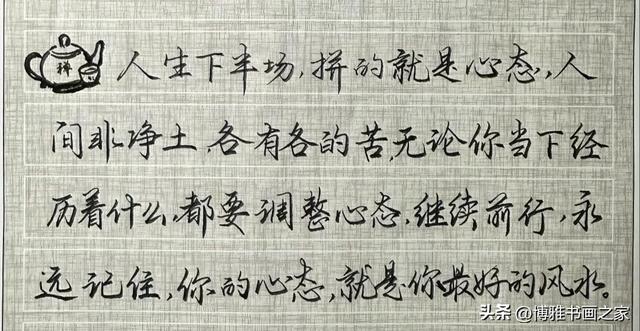 禅
人生下半场,拼的就是心态,人
间非净土,各有各的苦,无论你当下经
历着什么,都要调整心态,继续前行,永
远记住,你的心态,就是你最好的风水。
头条 @博雅书画之家